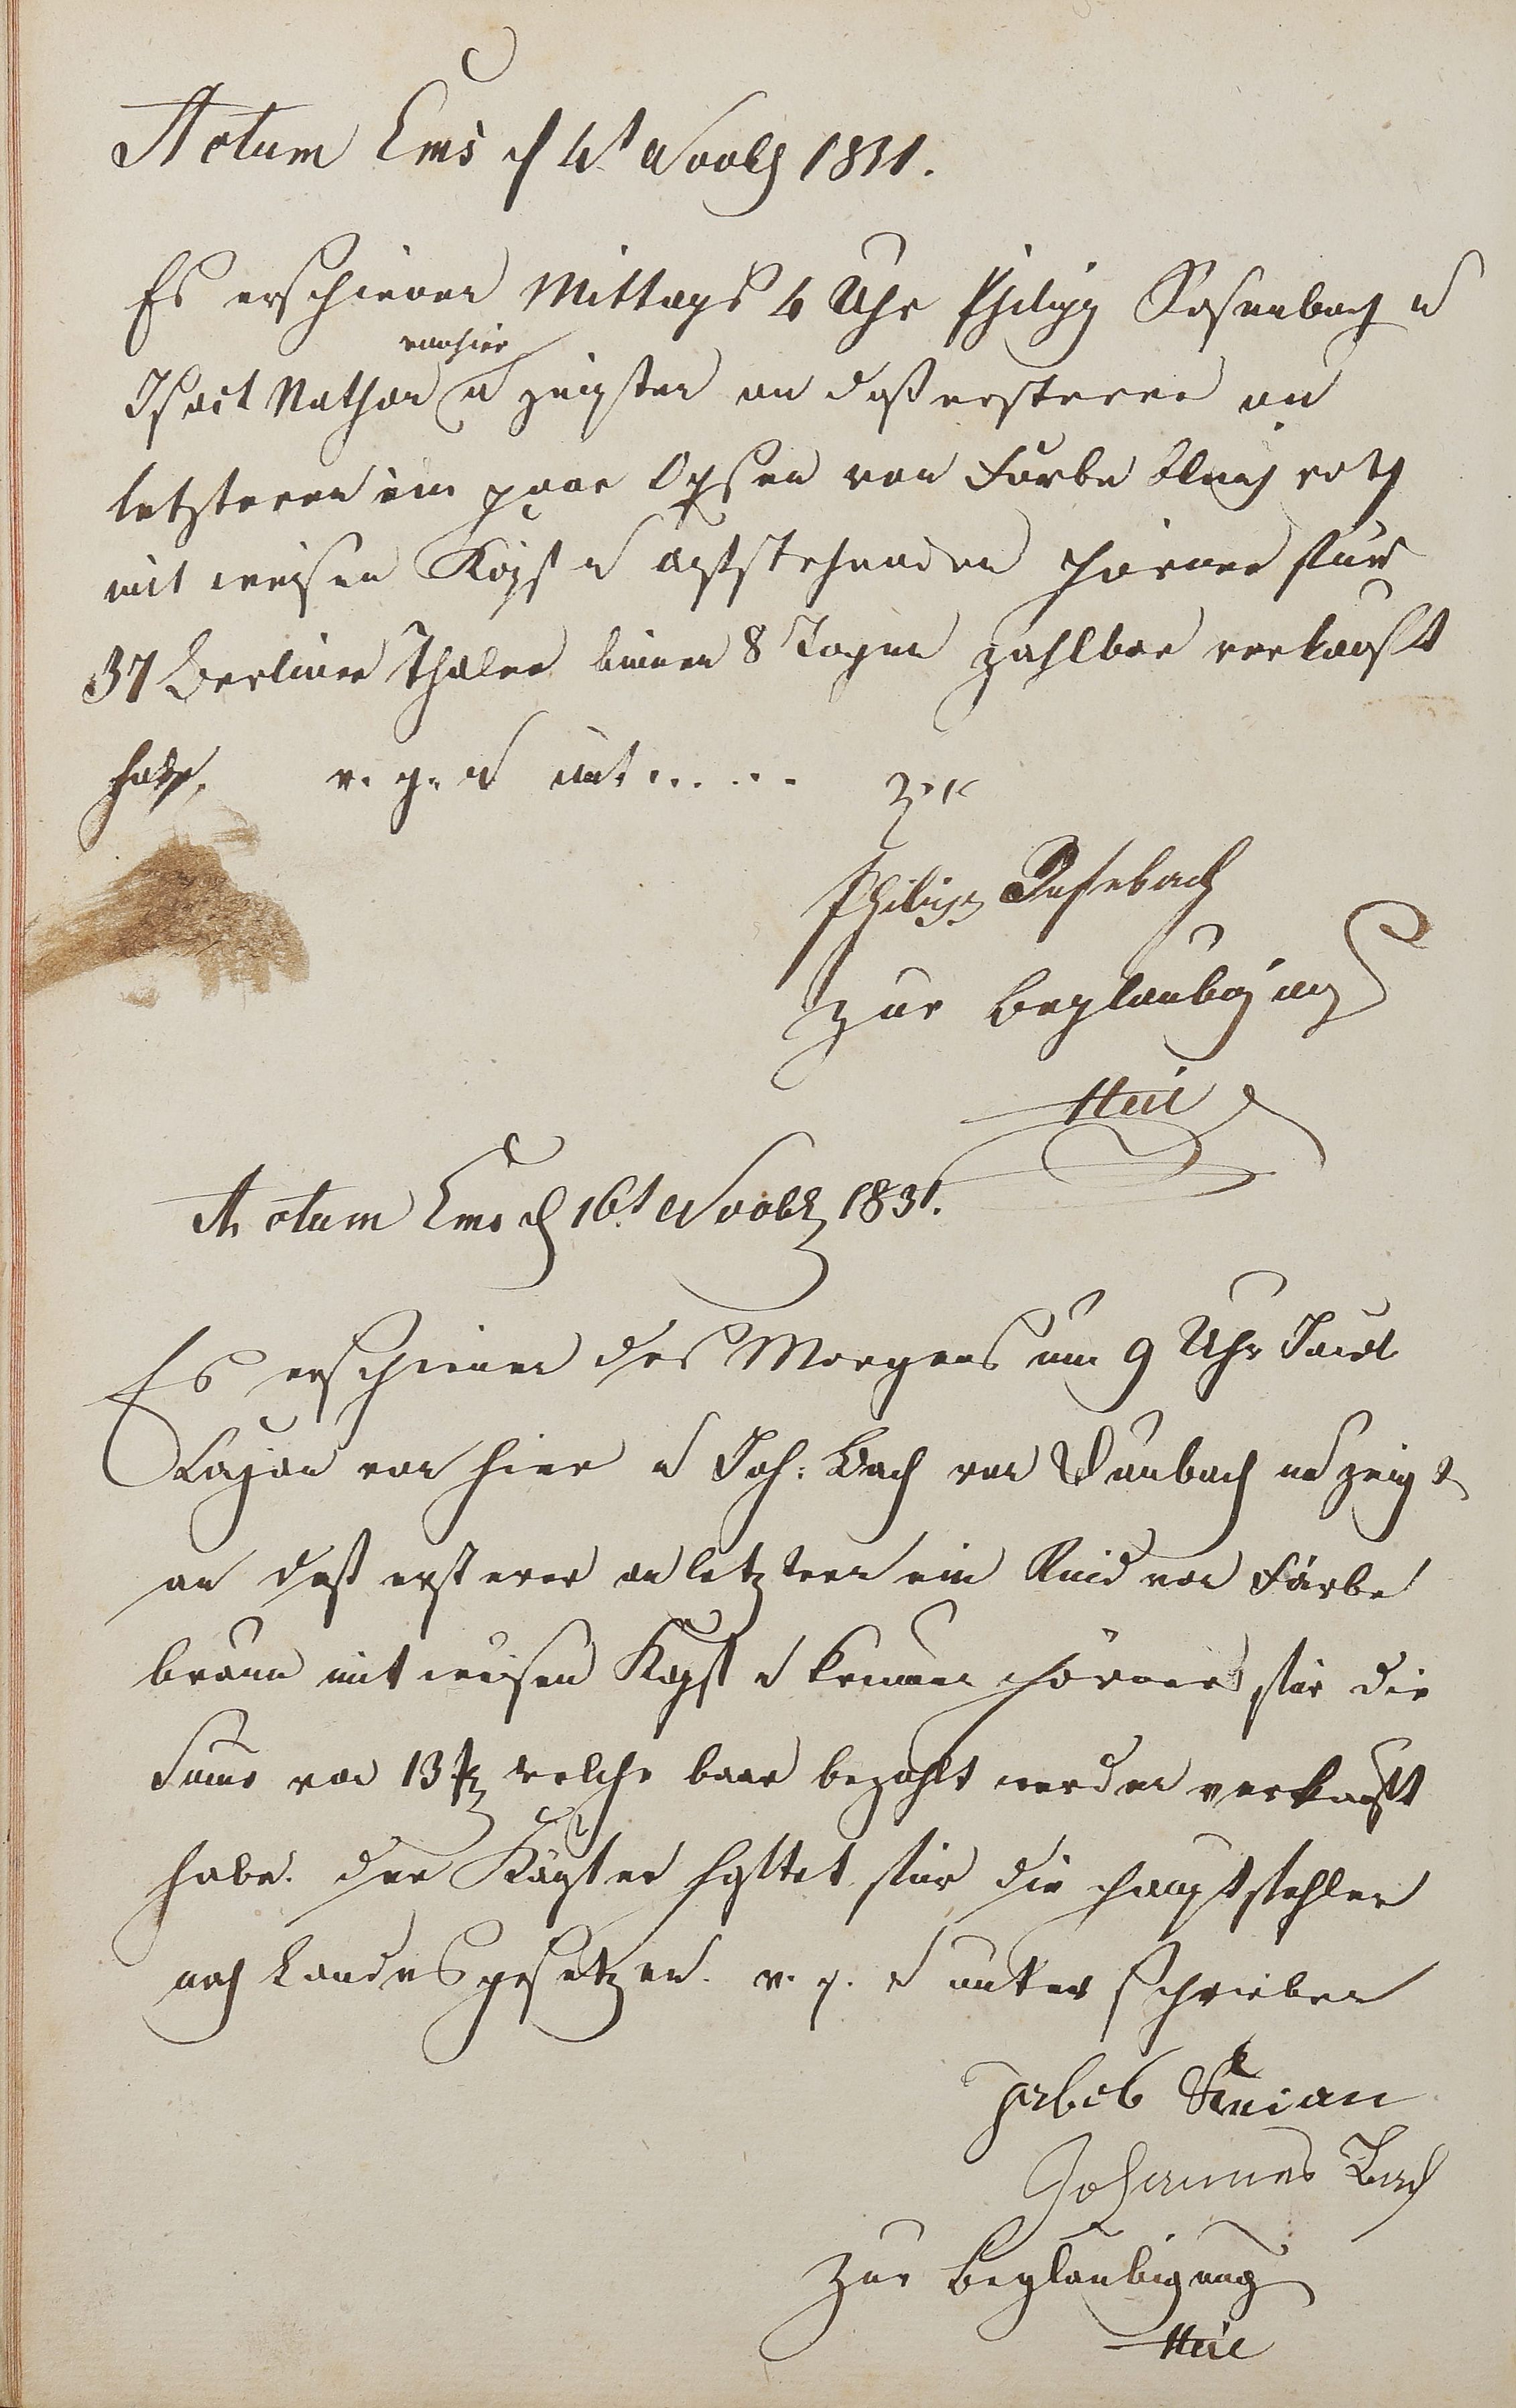 Actum Ems d 4t Novbr 1831.
Es erschienen Mittags 4 Uhr Philipp Rosenbach u
von hier
Isack Nathan u zeigten an daß ersterer an
letzteren ein paar Ochsen von Farbe roth
mit weisen Köpf u aufstehenden Hörner für
37 Berliner Thaler binnen 8 Tagen zahlbar verkauft
habe, v. g. u unt......
Philipp Rosebach
zur Beglaubigung
Actum Ems d 16t Novbr 1831.
Es erschienen des Morgens um 9 Uhr
von hier u Joh: Bach von Daubach und zeigt
an daß ersterer an letzteren ein Rind von Farbe
braun mit weisen Kopf u krumme Hörner für die
Sume von 13 welche baar bezahlt werden verkauft
habe. der Käufer haftet für die Hauptfehler
nach Landesgesetzen. v. g. u unterschrieben
Johannes Bach
Zur Beglaubigung